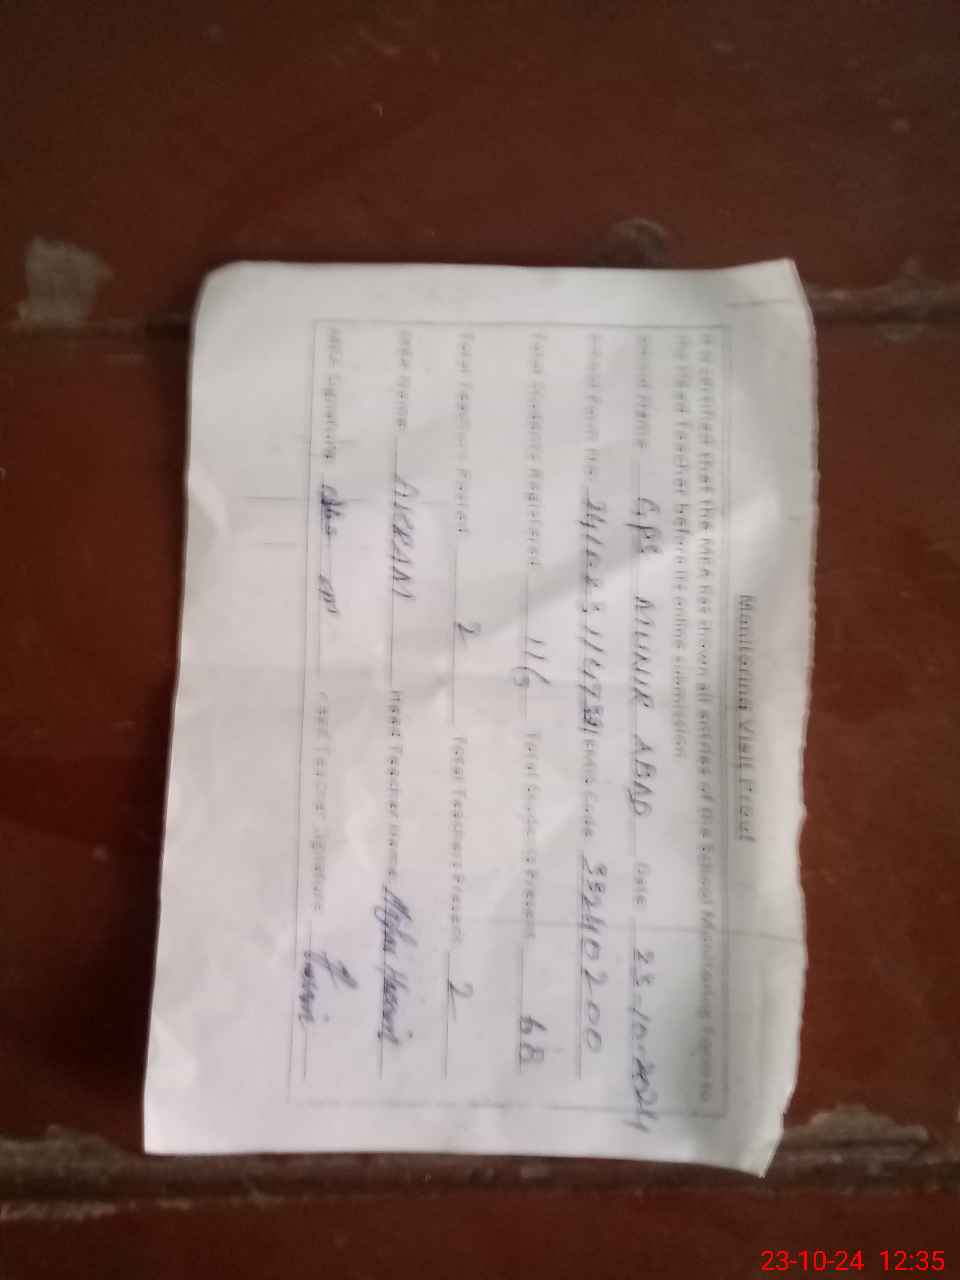 Monitoring Visit Proof
It is certified that the MEA has shown all entries of the School Monitoring Form to
the Head Teacher before its online submission.
School Name GPS MUNIR ABAD Date 23-10-2024
School Form No. EMIS Code 33240200
Total Students Registered 116 Total Students Present 68
Total Teachers Posted 2 Total Teachers Present 2
MEA Name AKRAM Head Teacher Name Hussain
MEA Signature Head Teacher Signature Hussain
23-10-24 12:35